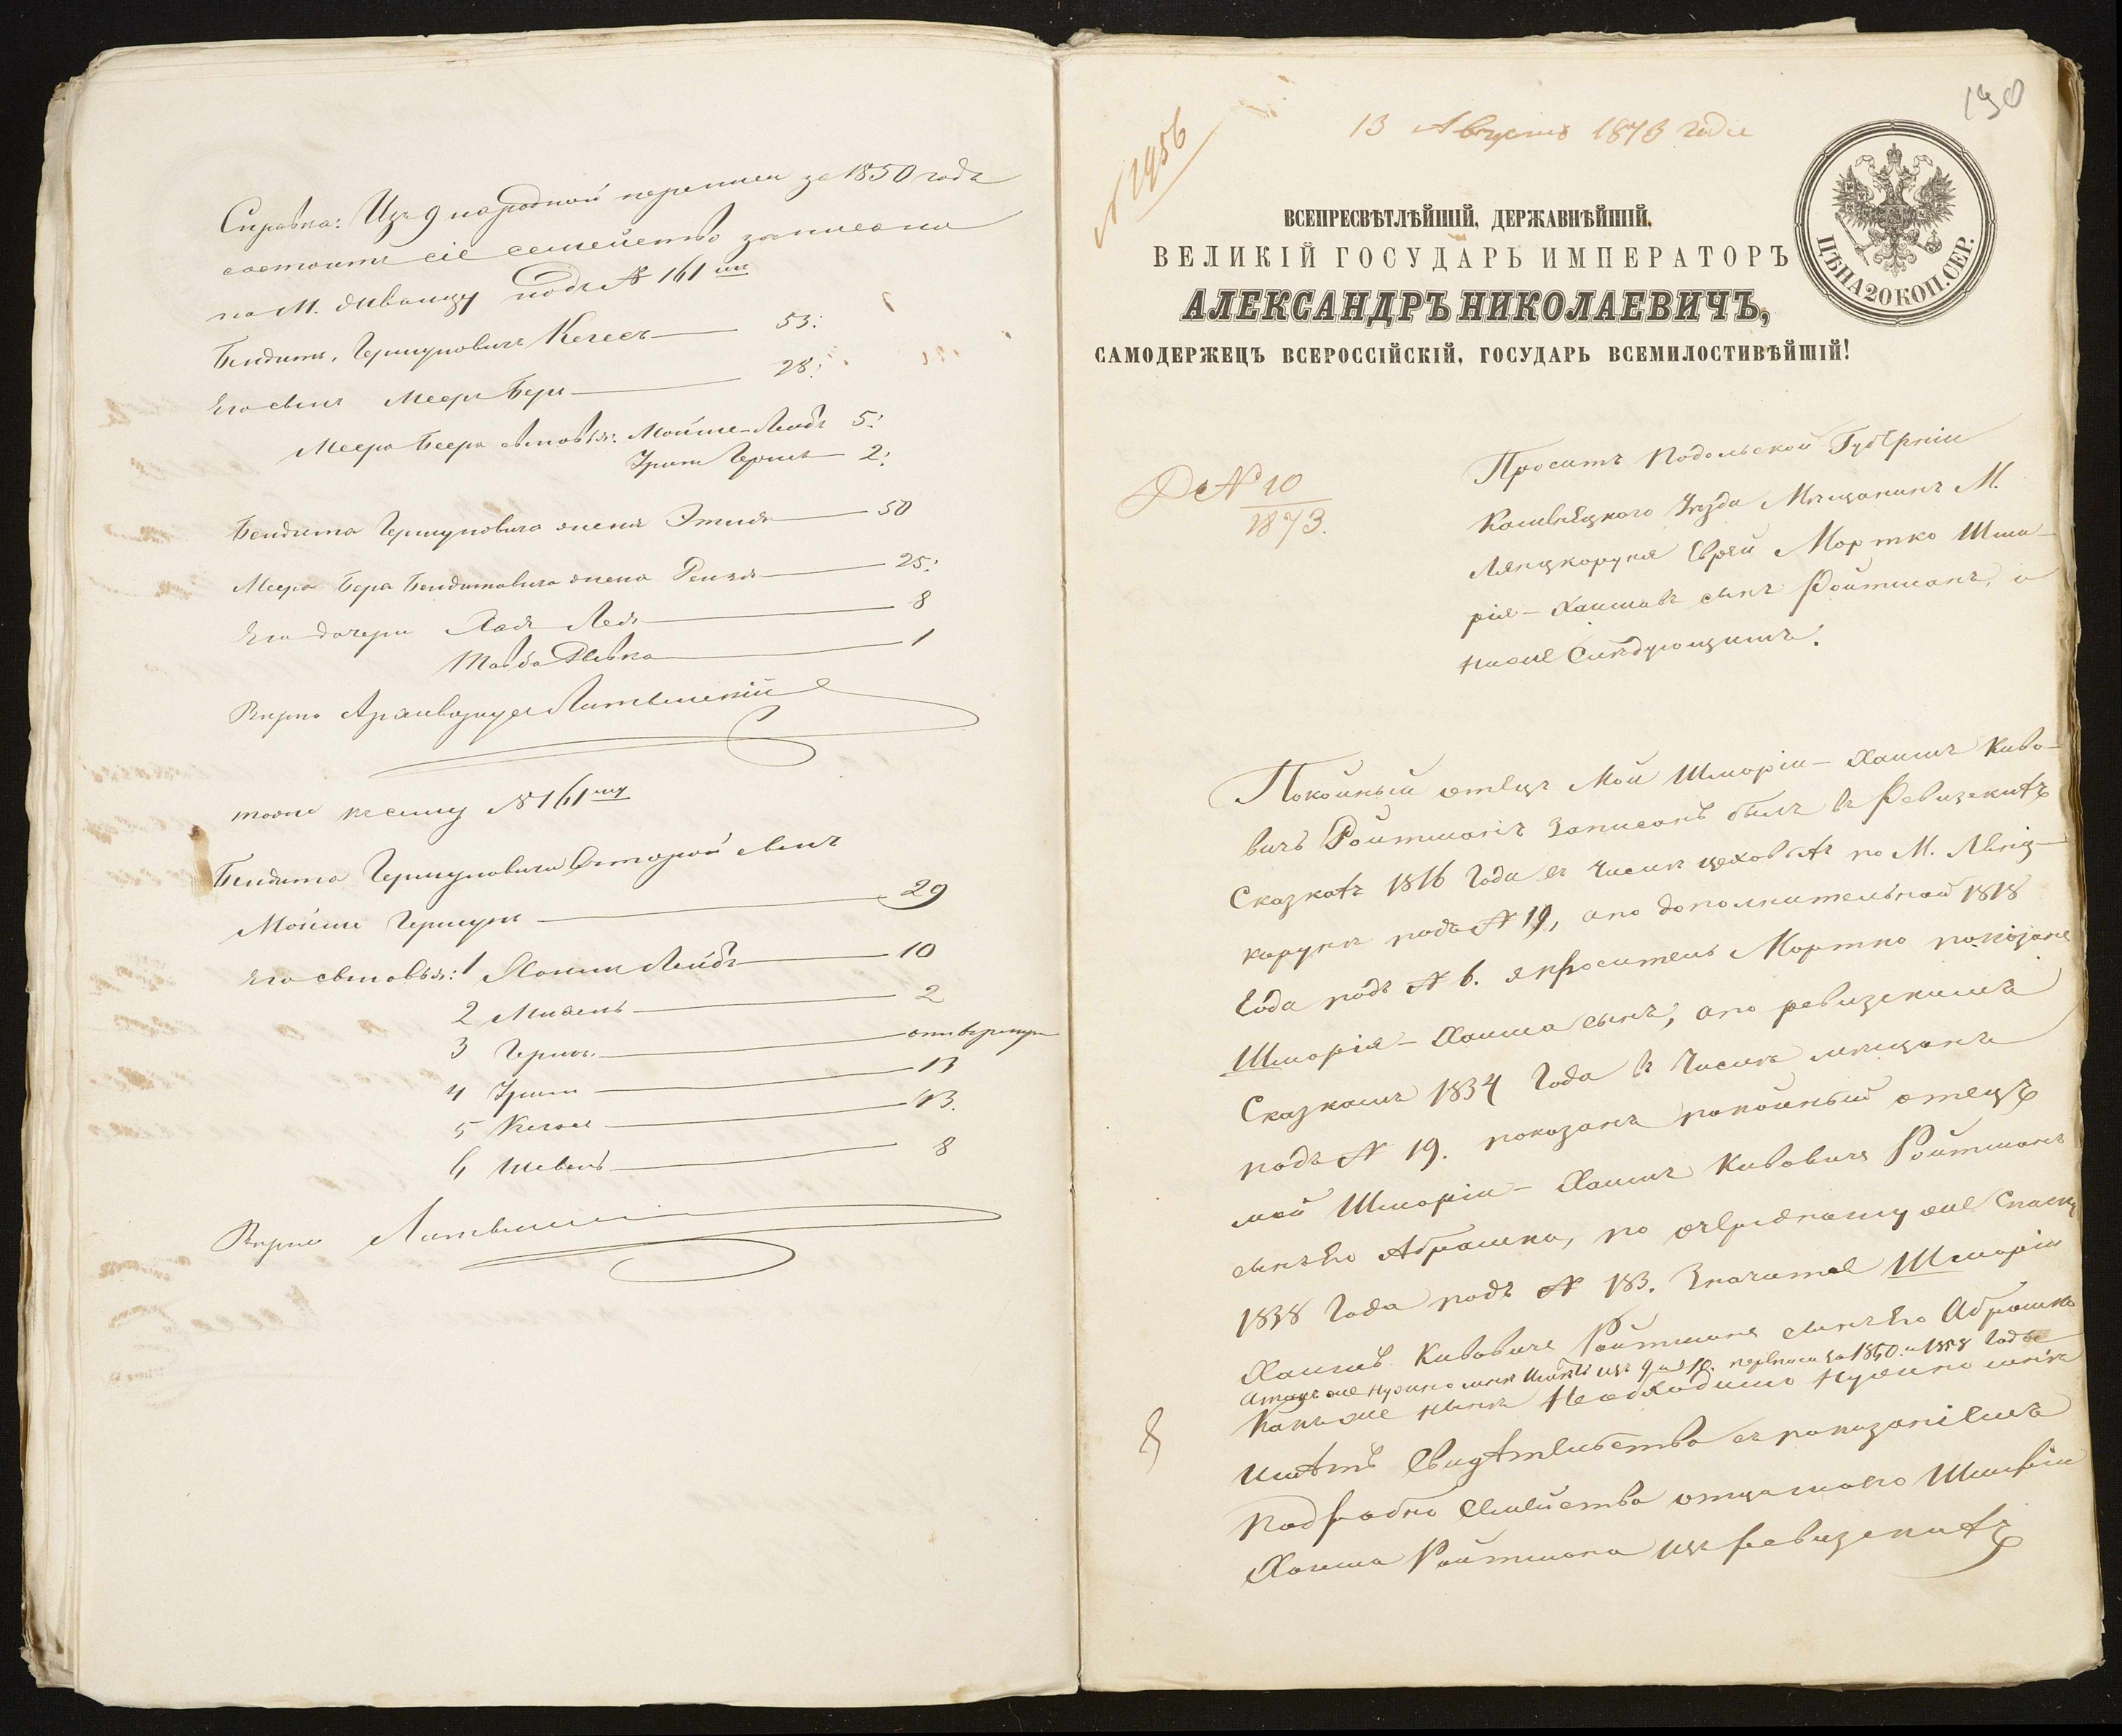 Справка: Изъ 9 народной переписи за 1850 года
состоитъ сіе семейство записано
по М. Жванцу подъ № 161мъ
Бендитъ, Гершуновичъ Кегесъ — 53:
Его сынъ Мееръ Беръ — 28:
Меера Беера сыновья: Мойше-Лейбъ 5:
Грит Гершъ — 2:
Бендита Гершуновича жена Этля — 50
Меера Бера Бендитовича жена Рейзя — 25:
Его дочери Хая Лея — 8
Тавба Ривка — 1
Верно Архиваріусъ Литвинскій
тоже къ сему № 161му
Бендита Гершуновича Второй сынъ
Мойше Гершунъ — 29
Его сыновья: 1 Хаимъ Лейбъ — 10
2 Михель — 2
3 Гершъ —
4 — 13
5 — 13.
6 Шевель — 8
Верно
190
13 Августа 1873 года
№ 1956
ЦѢНА 20 КОП. СЕР.
ВСЕПРЕСВѢТЛѢЙШІЙ, ДЕРЖАВНѢЙШІЙ,
ВЕЛИКІЙ ГОСУДАРЬ ИМПЕРАТОРЪ
АЛЕКСАНДРЪ НИКОЛАЕВИЧЪ,
САМОДЕРЖЕЦЪ ВСЕРОССІЙСКІЙ, ГОСУДАРЬ ВСЕМИЛОСТИВѢЙШІЙ!
Д № 10
1873.
Проситъ Подольской Губерніи
Каменецкаго Уѣзда Мѣщанинъ М.
Лянцкоруня Еврей Мортко Шма-
рія-Хаимовъ сынъ Ройтманъ, о
ниже Слѣдующимъ:
Покойный отецъ Мой Шмарія-Хаимъ Киво-
вичъ Ройтманъ записанъ былъ въ Ревизскихъ
Сказкахъ 1816 Года въ Числѣ цеховыхъ по М. Лянц-
коруня подъ № 19, а по дополнительной 1818
Года подъ № 6. я проситель Мортко показанъ
Шмарія-Хаима сынъ, а по ревизскимъ
Сказкамъ 1834 Года въ Числѣ мѣщанъ
подъ № 19. показанъ покойный отецъ
мой Шмарія-Хаимъ Кивовичъ Ройтманъ
сынъ Его Абрамко, по очередному же Списку
1838 Года подъ № 183. Значится Шмарія
Хаимъ Кивовичъ Ройтманъ сынъ Его Абрамко
а также нужно мнѣ имѣть изъ 9 и 10. переписи за 1850. и 1858 Годы
Какъ же нынѣ Необходимо нужно мнѣ
имѣть Свидѣтельство съ показаніемъ
Подробно Семейства отца моего Шмарія
Хаима Ройтмана изъ ревизскихъ